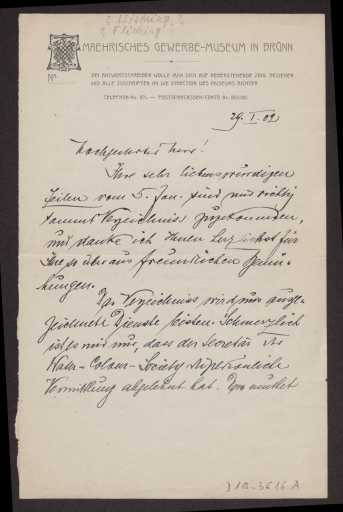 MAEHRISCHES GEWERBE-MUSEUM IN BRÜNN
No
BEI ANTWORTSCHREIBEN WOLLE MAN SICH AUF NEBENSTEHENDE ZAHL BEZIEHEN
UND ALLE ZUSCHRIFTEN AN DIE DIREKTION DES MUSEUMS RICHTEN
TELEPHON-Nr.
29. I. 02
Hochgeehrter Herr!
Ihre sehr liebenswürdigen
Zeilen vom 5. Jan. sind mir richtig
sammt Verzeichnis zugekommen,
und danke ich Ihnen herzlichst für
Ihre so überaus freundlichen Bemü-
hungen.
Das Verzeichniss wird mir ausge-
zeichnete Dienste leisten. Schmerzlich
ist es mir nur, dass der Secretär der
Water-Colour-Society die persönliche
Vermittlung abgelehnt hat.